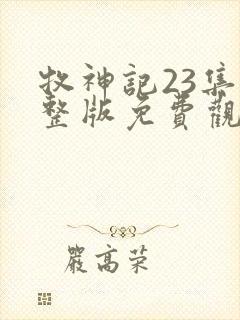 牧神記23集
整版免費觀
嚴高荣